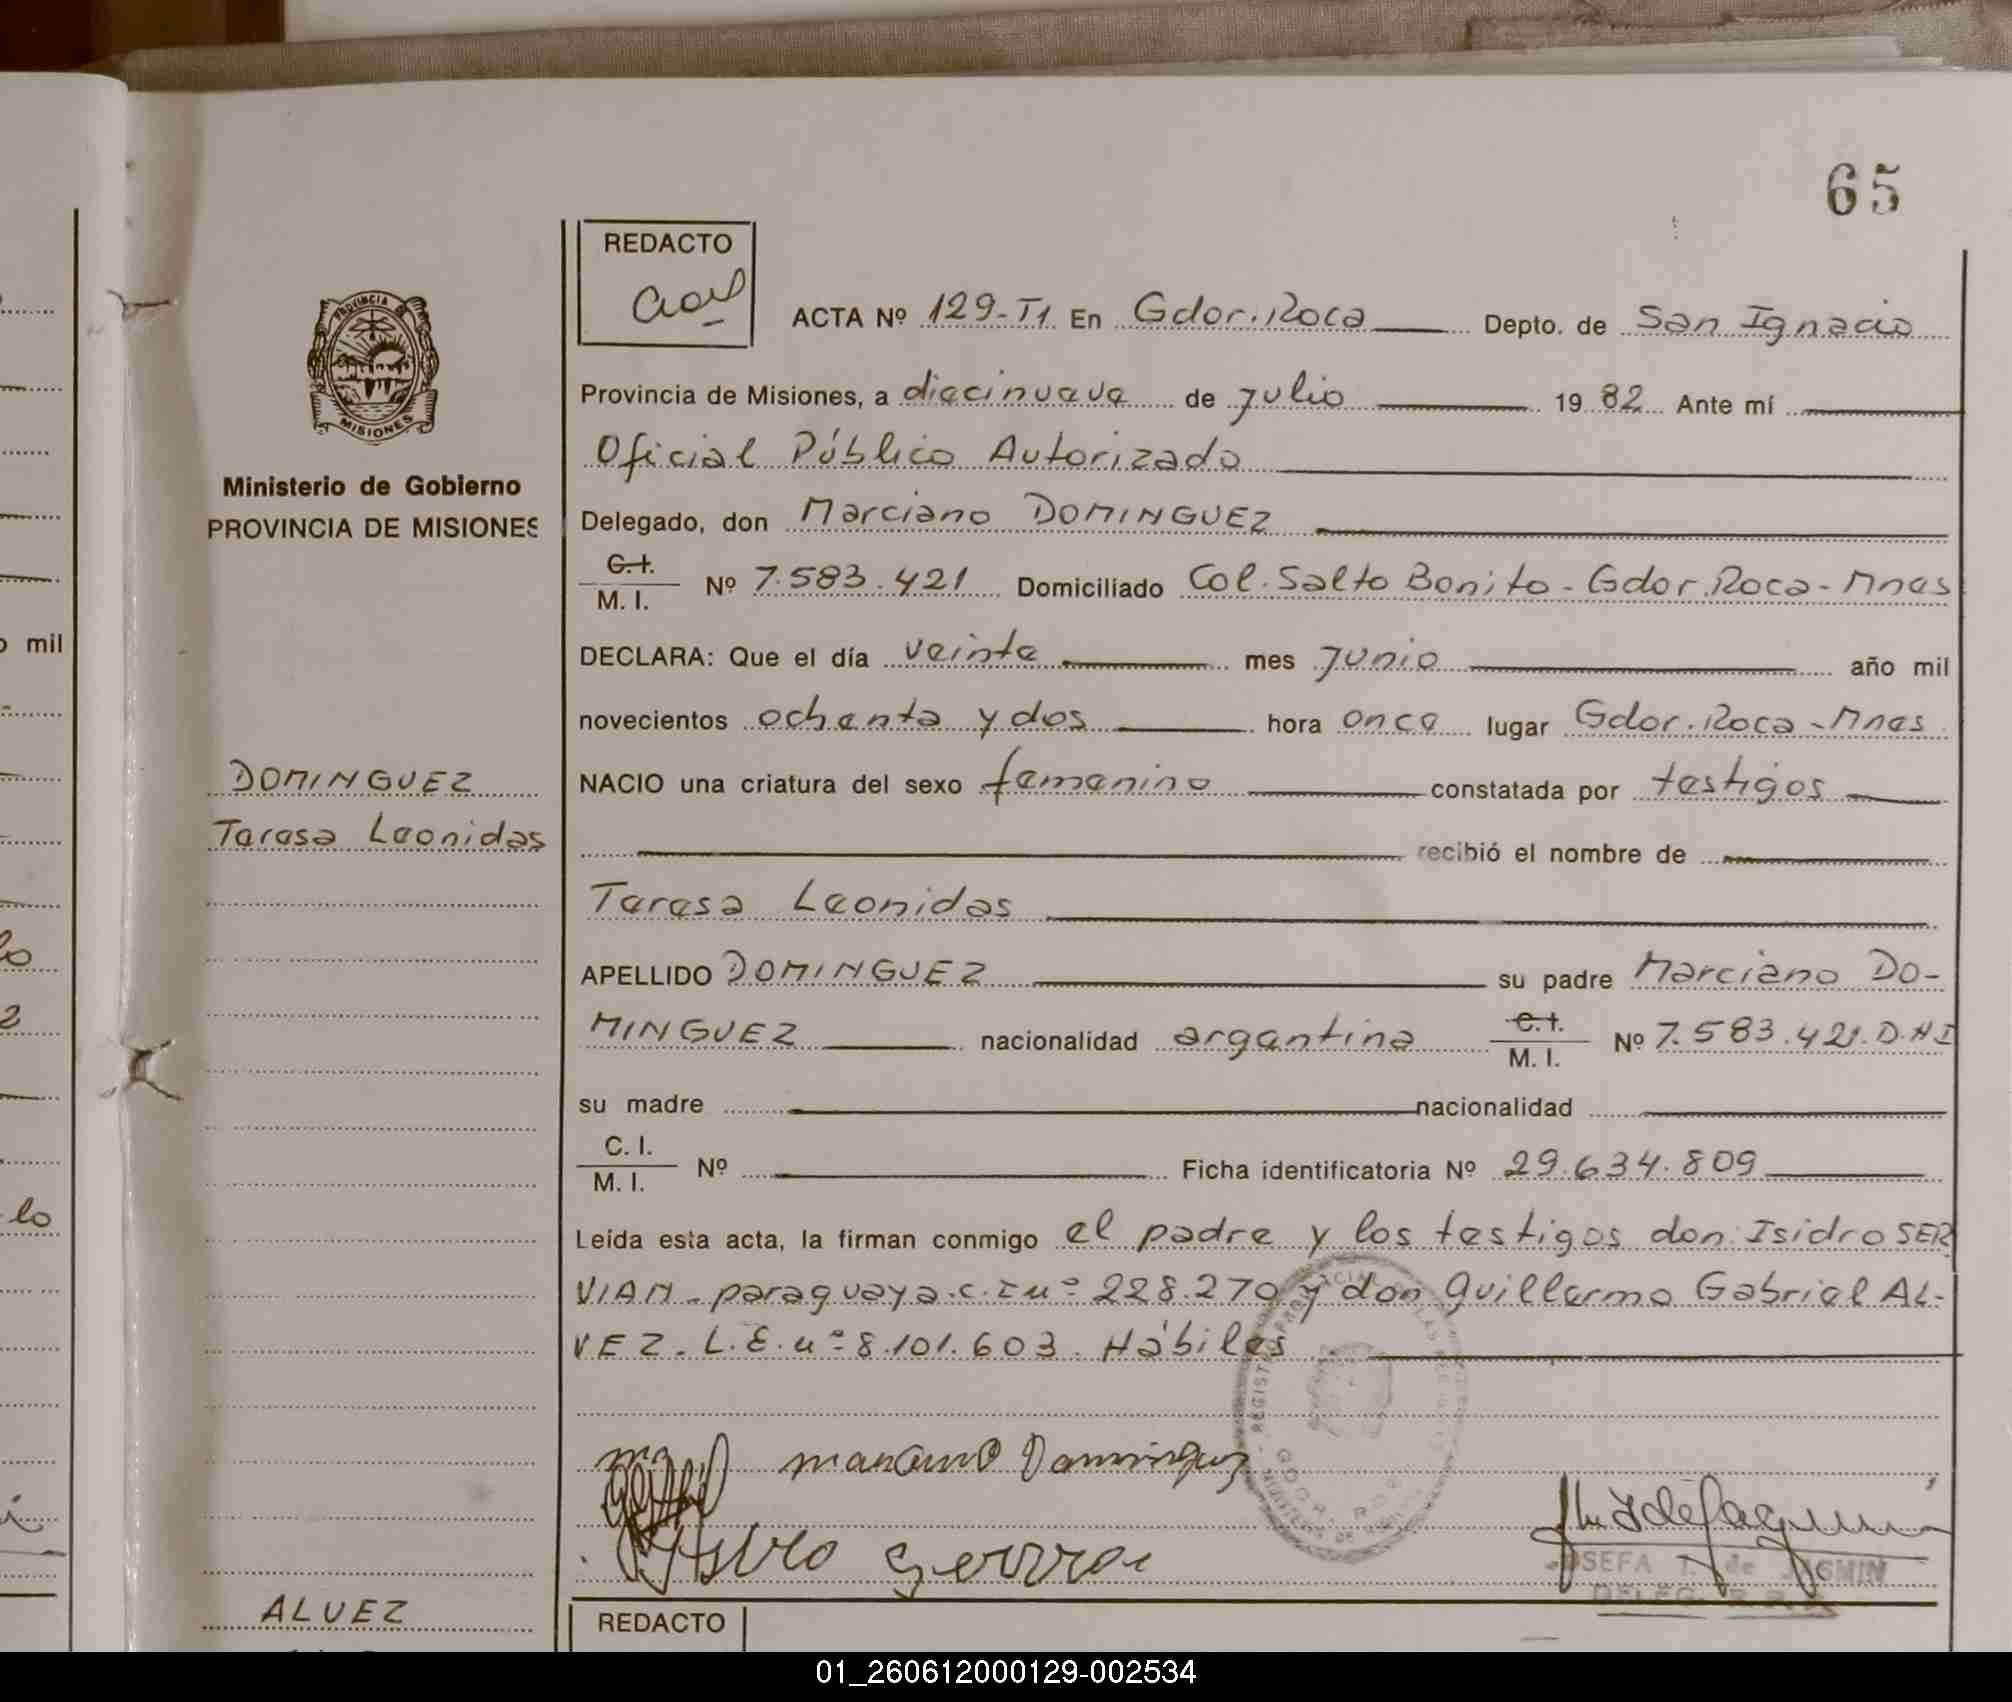 65
REDACTO
PROVINCIA DE
MISIONES
ACTA Nº 129-T1 En Gdor. Roca Depto. de San Ignacio
Provincia de Misiones, a diecinueve de julio 1982 Ante mí
Oficial Público Autorizado
Ministerio de Gobierno
PROVINCIA DE MISIONES
Delegado, don Marciano DOMINGUEZ
C.I. M. I. Nº 7.583.421 Domiciliado Col. Salto Bonito - Gdor. Roca - Mnes
DECLARA: Que el día veinte mes junio año mil
novecientos ochenta y dos hora once lugar Gdor. Roca - Mnes
DOMINGUEZ
Teresa Leonidas
NACIO una criatura del sexo femenino constatada por testigos
recibió el nombre de
Teresa Leonidas
APELLIDO DOMINGUEZ su padre Marciano DO-
MINGUEZ nacionalidad argentina C.I. M. I. Nº 7.583.421. D.N.I
su madre nacionalidad
C. I. M. I. Nº Ficha identificatoria Nº 29.634.809
Leída esta acta, la firman conmigo el padre y los testigos don Isidro SER
VIAN - paraguaya. C.I nº 228.270 y don Guillermo Gabriel AL-
VEZ - L.E. nº 8.101.603. Hábiles
Marciano Dominguez
JOSEFA T. de JASMIN
DELEG.
ALVEZ
REDACTO
mil
lo
2
lo
01_260612000129-002534